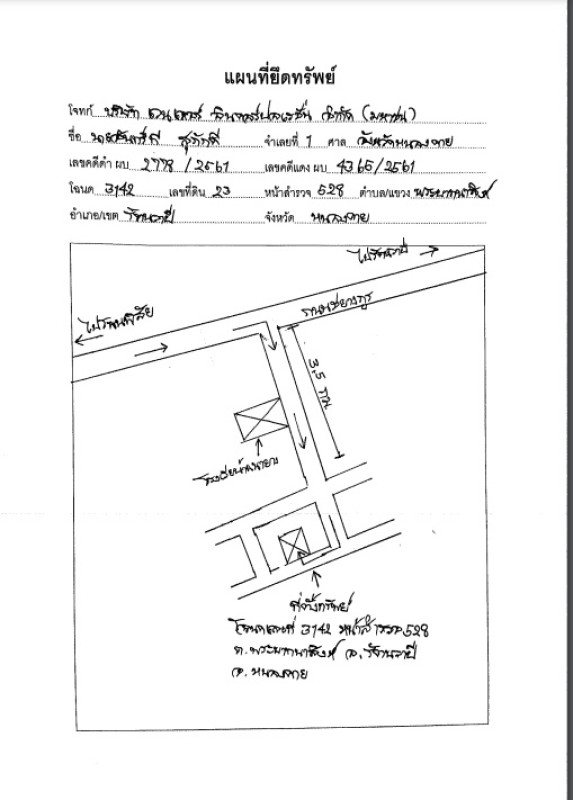 แผนที่ยึดทรัพย์
โจทก์ บริษัท จำกัด (มหาชน)
ชื่อ สุภักดี จำเลยที่ 1 ศาล จังหวัดหนองคาย
เลขคดีดำ ผบ 2778 / 2561 เลขคดีแดง ผบ 4365 / 2561
โฉนด 3142 เลขที่ดิน 23 หน้าสำรวจ 528 ตำบล/แขวง พระบาทนาสิงห์
อำเภอ/เขต รัตนวาปี จังหวัด หนองคาย
ไปรัตนวาปี
ถนนชยางกูร
ไปโพนพิสัย
3.5 กม
ที่ตั้งทรัพย์
โฉนดเลขที่ 3142 หน้าสำรวจ 528
ต.พระบาทนาสิงห์ อ.รัตนวาปี
จ.หนองคาย